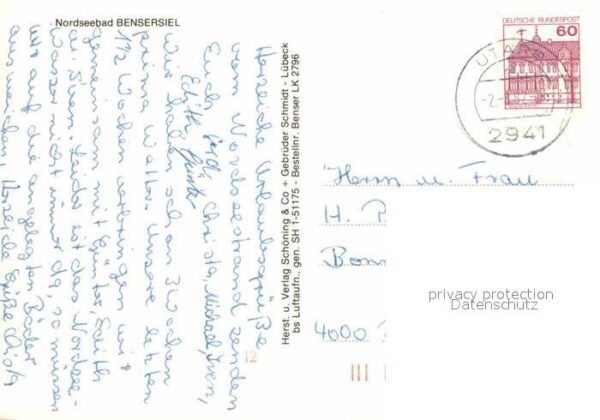 Nordseebad BENSERSIEL
Herzliche Urlaubsgrüße
vom Nordseestrand senden
Euch Christa, Michael, Sven,
Edith Günter
Wir haben schon 3 Wochen
prima Wetter. Unsere letzten
1½ Wochen verbringen wir
gemeinsam mit Günter, Edith
u. Sven. Leider ist das Nordsee-
wasser nicht immer da, so müssen
wir auf die angelegten Bäder
ausweichen. Herzliche Grüße Christa
Herst. u. Verlag Schöning & Co + Gebrüder Schmidt - Lübeck
bs Luftaufn., gen. SH 1-51175 - Bestellnr. Benser LK 2796
DEUTSCHE BUNDESPOST
60
2941
Herrn u. Frau
H.
4000
privacy protection
Datenschutz